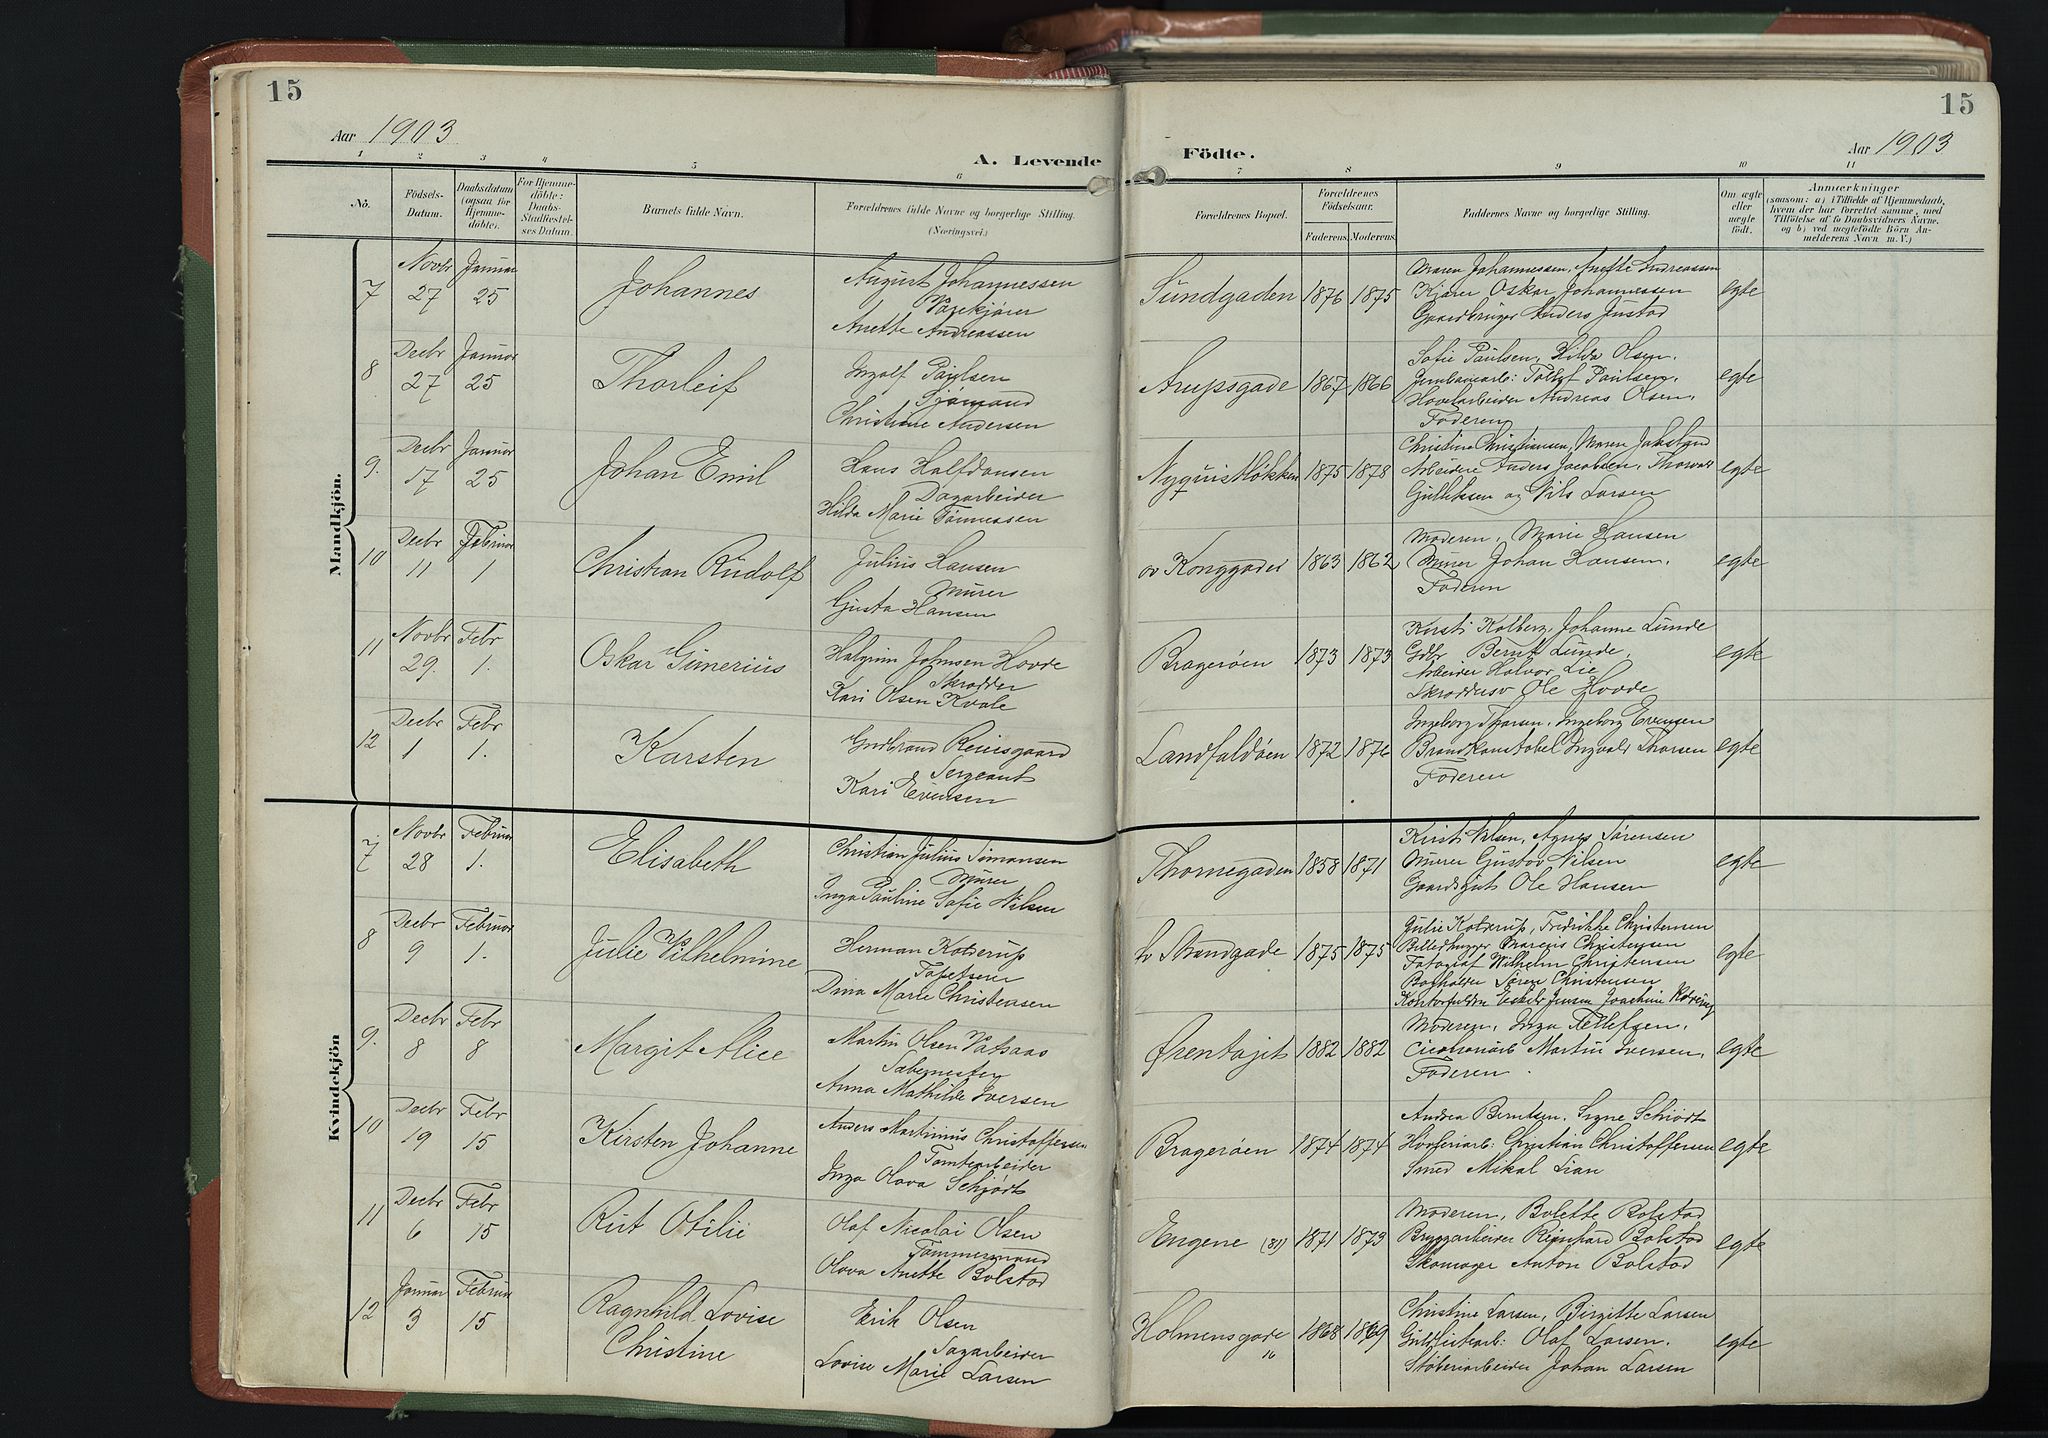 15
Aar 1903
A. Levende
1 2 3 4 5 6
No.
Födsels-
Datum.
Daabsdatum
(ogsaa for
Hjemme-
döbte).
For Hjemme-
döbte:
Daabs-
Stadfæstel-
ses Datum.
Barnets fulde Navn.
Forældrenes fulde Navne og borgerlige Stilling.
(Næringsvei.)
Mandkjön.
7 Novbr 27 Januar 25 Johannes
August Johannessen
Anette Andreassen
8 Decbr 27 Januar 25 Thorleif
Ingolf Paulsen
Sjømand
Christine Andersen
9. Decbr 17 Januar 25 Johan Emil
Hans Halfdansen
Dagarbeider
Hilda Marie Tønnessen
10 Decbr 11 Februar 1 Christian Rudolf
Julius Hansen
Murer
Gusta Hansen
11 Novbr 29. Febr 1. Oskar Gunerius
Halgrim Johnsen Hovde
Skrædder
Kari Olsen Kvale
12 Decbr 1 Febr 1. Karsten
Gudbrand
Sergeant
Kari Evensen
Kvindekjön
7 Novbr 28 Februar 1. Elisabeth
Christian Julius Simonsen
Murer
Inga Pauline Sofie Nilsen
8 Decbr 9 Februar 1. Julie Vilhelmine
Herman
Dina Marie Christensen
9. Decbr 8 Febr 8 Margit Alice
Martin Olsen
Anna Mathilde Iversen
10 Decbr 19 Febr 15 Kirsten Johanne
Anders Martinius Christoffersen
Tomtearbeider
Inga Olava Schjødt
11 Decbr 6 Febr 15 Rut Otilie
Olaf Nicolai Olsen
Tømmermand
Olava Anette Bolstad
12 Januar 3 Februar 15 Ragnhild Lovise
Christine
Erik Olsen
Sagarbeider
Lovise Marie Larsen
15
Födte.
Aar 1903
7 8 9 10 11
Forældrenes Bopæl.
Forældrenes
Födselsaar.
Faderens. Moderens.
Faddernes Navne og borgerlige Stilling.
Om ægte
eller
uægte
födt.
Anmærkninger
(saasom: a) i Tilfælde af Hjemmedaab,
hvem der har forrettet samme, med
Tilföielse af to Daabsvidners Navne.
og b) ved uægtefödte Börn An-
melderens Navn m. V.)
Sundgaden 1876 1875
Maren Johannessen, Anette Andreassen
Kjører Oskar Johannessen
Gaardbruger Anders Justad
egte
Arupsgade 1867 1866
Sofie Paulsen, Hilda Olsen.
Jernbanearb: Tollef Paulsen.
Høvlarbeider Andreas Olsen.
Faderen
egte
Nyquistløkken 1875 1878
Christine Christiansen, Maren
Arbeidere Anders Jacobsen,
og Nils Larsen
egte
ov Konggade 1863 1862
Moderen, Marie Hansen
Murer Johan Hansen.
Faderen
egte
Bragerøen 1873 1873
Kirsti Kolberg, Johanne Lunde
Gdbr Bernt Lunde,
Arbeider Halvor Lie
Skræddersv Ole Hovde
egte
Landfaldøen 1872 1876
Ingeborg Thorsen, Ingeborg Evensen
Brandkonstabel Ingvald Thorsen
Faderen
egte
Thornegaden 1858 1871
Kirsti Nilsen, Agnes Sørensen
Murer Gustav Nilsen
Gaardsgut Ole Hansen
egte
Strandgade 1875 1875
Julie Fredrikke Christensen
Billedhugger Marcus Christensen
Fotograf Wilhelm Christensen
Bogholder Søren Christensen
Jensen Joachim
egte
Ørentajet 1882 1882
Moderen, Inga Tellefsen.
Martin Iversen,
Faderen.
egte
Bragerøen 1874 1874
Andrea Berntsen. Signe Schiødt
Høvleriarb: Christian Christoffersen
Smed Mikal Lian
egte
Engene (81) 1871 1873
Moderen, Bolette Bolstad
Bryggarbeider Reinhard Bolstad
Skomager Anton Bolstad
egte
Holmensgade 16 1868 1869
Christine Larsen, Birgitte Larsen
Guldlistearb: Olaf Larsen.
Støberiarbeider Johan Larsen
egte